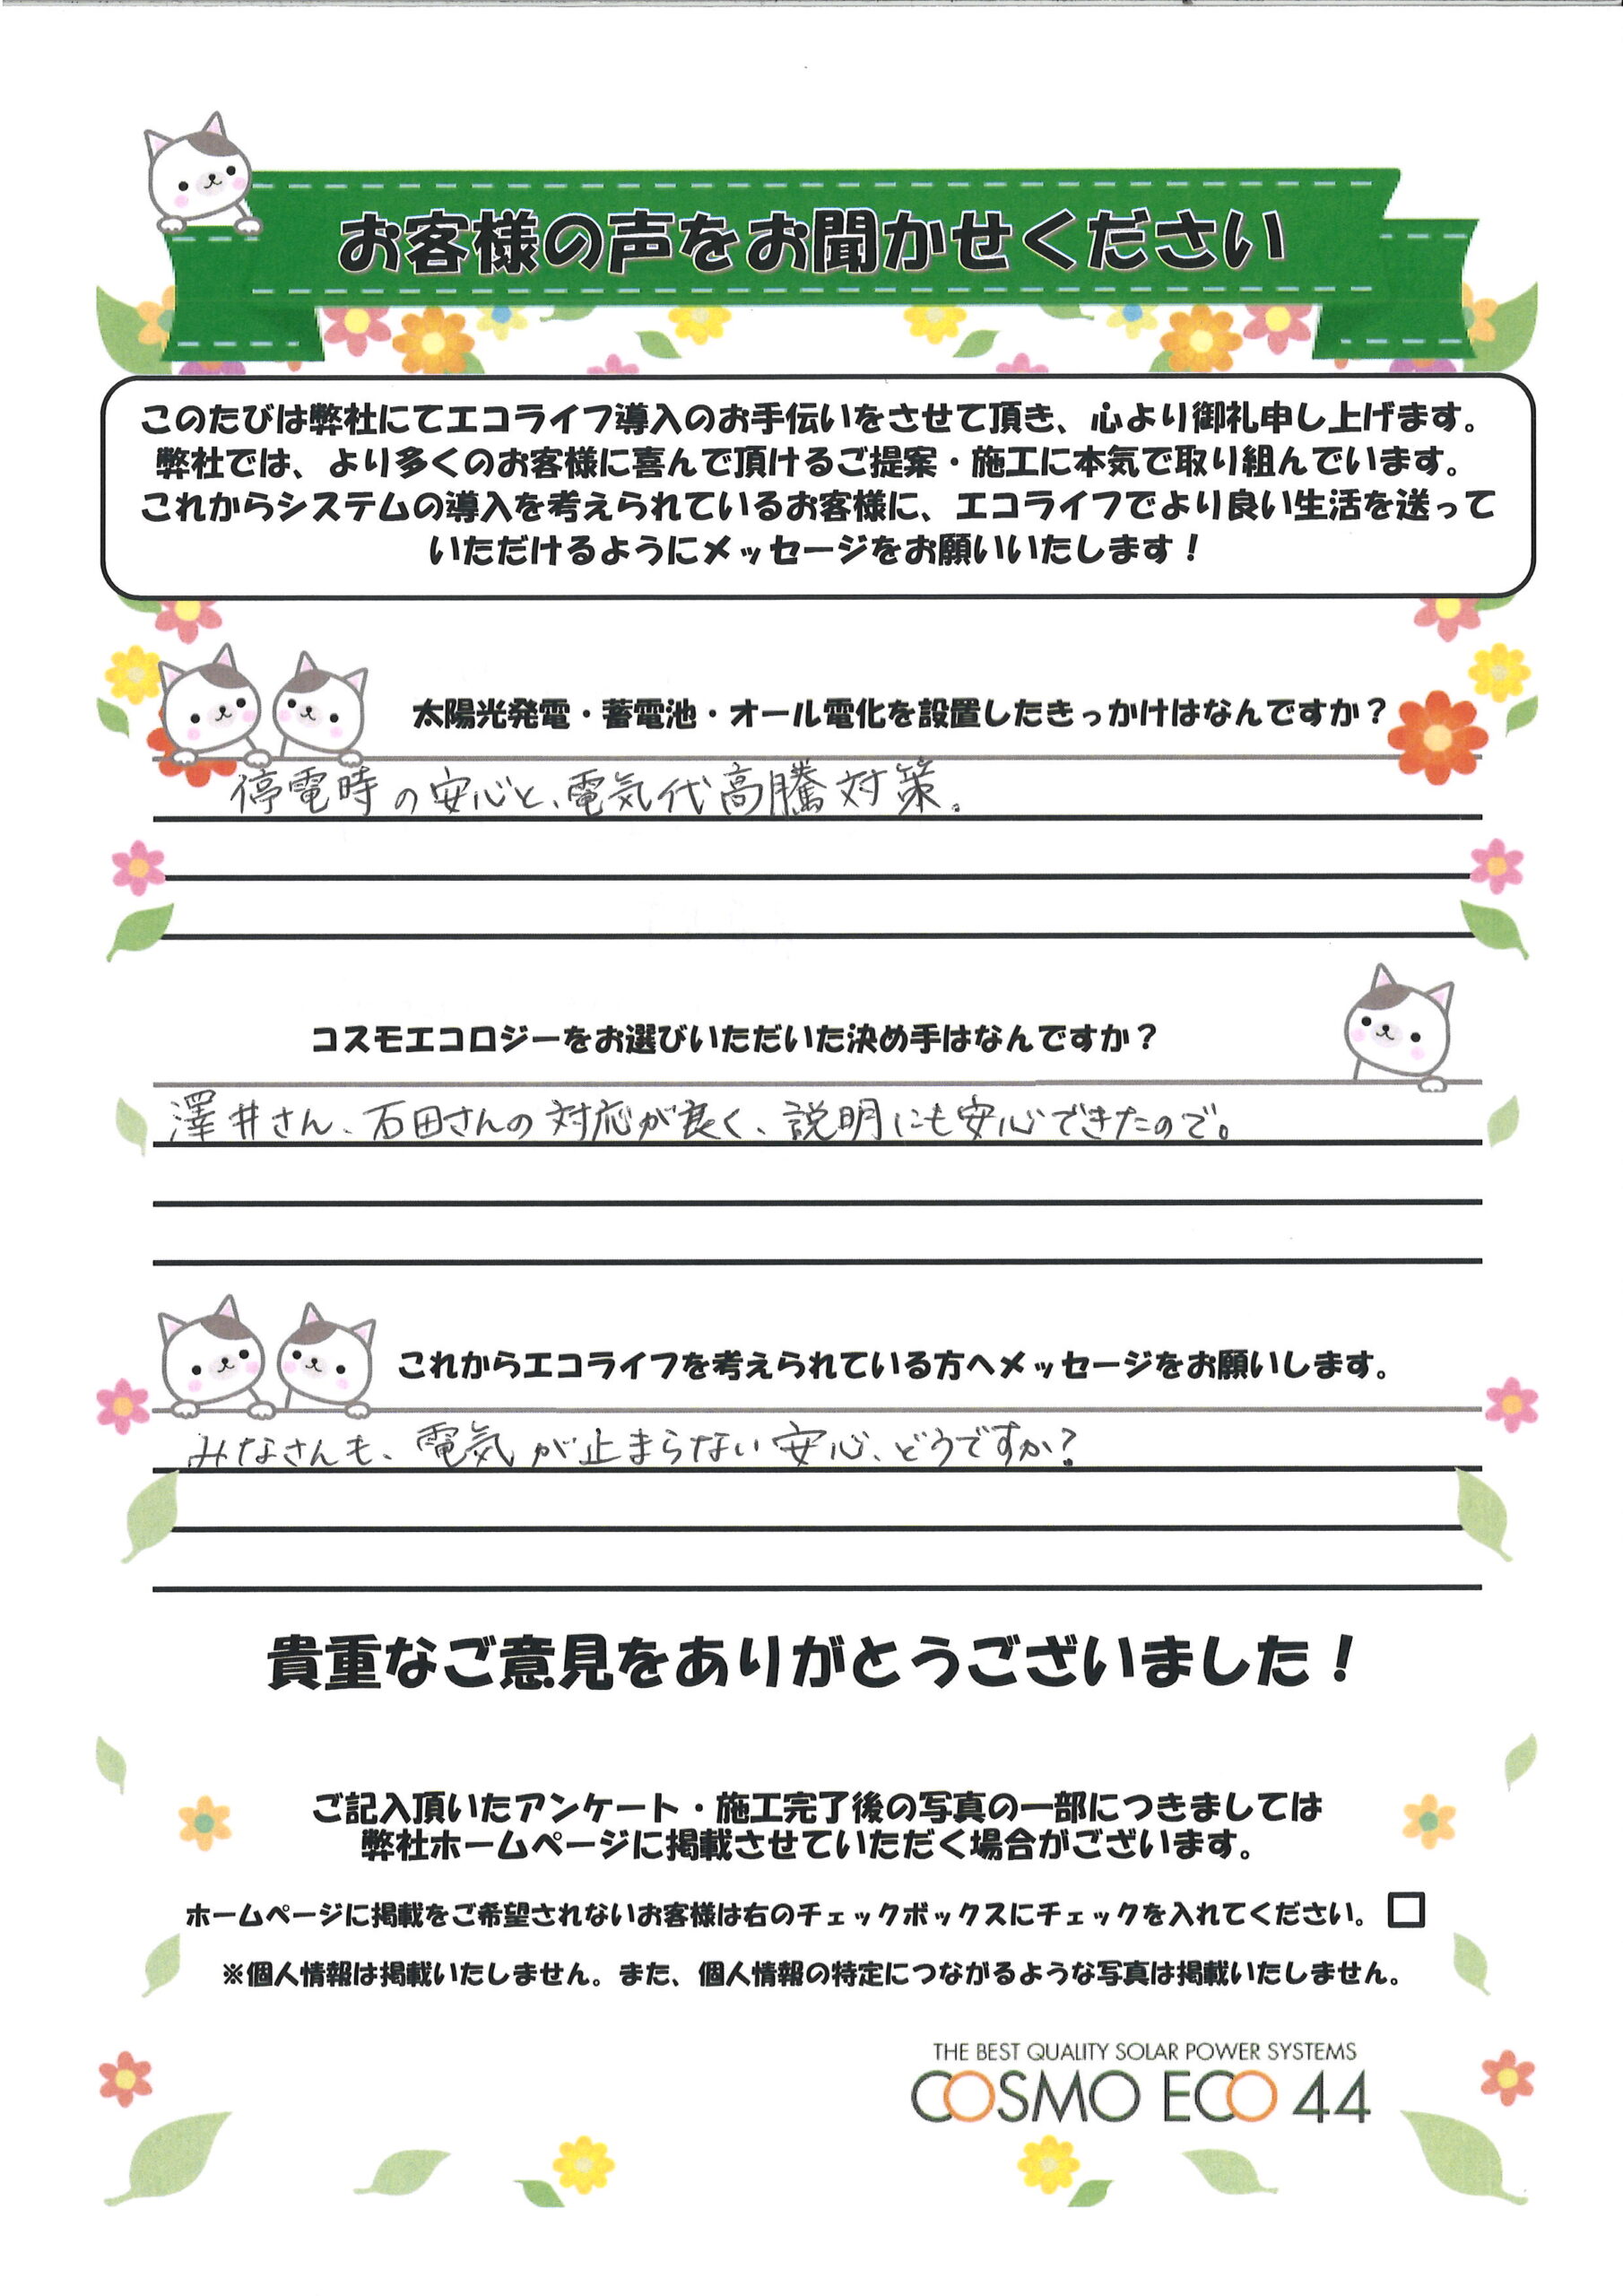 お客様の声をお聞かせください
このたびは弊社にてエコライフ導入のお手伝いをさせて頂き、心より御礼申し上げます。
弊社では、より多くのお客様に喜んで頂けるご提案・施工に本気で取り組んでいます。
これからシステムの導入を考えられているお客様に、エコライフでより良い生活を送って
いただけるようにメッセージをお願いいたします！
太陽光発電・蓄電池・オール電化を設置したきっかけはなんですか？
停電時の安心と、電気代高騰対策。
コスモエコロジーをお選びいただいた決め手はなんですか？
澤井さん、石田さんの対応が良く、説明にも安心できたので。
これからエコライフを考えられている方へメッセージをお願いします。
みなさんも、電気が止まらない安心、どうですか？
貴重なご意見をありがとうございました！
ご記入頂いたアンケート・施工完了後の写真の一部につきましては
弊社ホームページに掲載させていただく場合がございます。
ホームページに掲載をご希望されないお客様は右のチェックボックスにチェックを入れてください。 □
※個人情報は掲載いたしません。また、個人情報の特定につながるような写真は掲載いたしません。
THE BEST QUALITY SOLAR POWER SYSTEMS
COSMO ECO 44